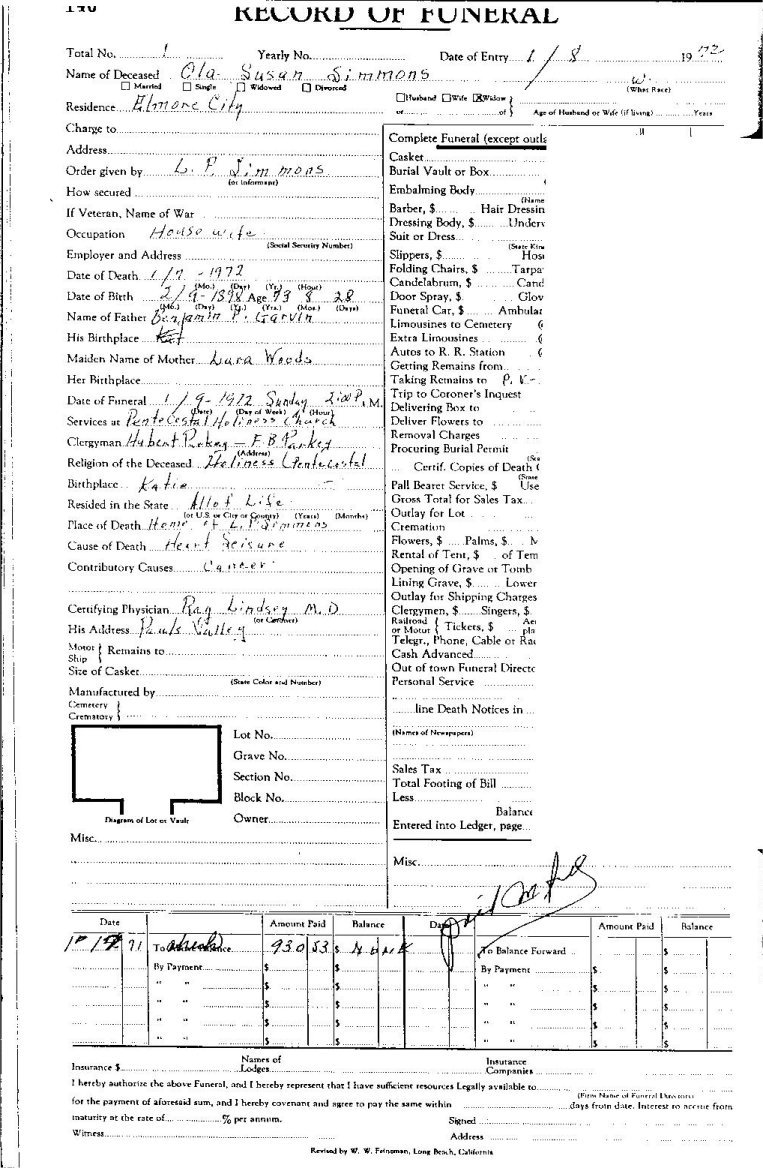 RECORD OF FUNERAL
Total No. 1 Yearly No. Date of Entry 1 / 8 1972
Name of Deceased Ola Susan Simmons W.
☐ Married ☐ Single ☐ Widowed ☐ Divorced (What Race)
Residence Elmore City ☐Husband ☐Wife ☒Widow } of of } Age of Husband or Wife (if living) Years
Charge to
Address
Order given by L. P. Simmons
(or Informant)
How secured
If Veteran, Name of War
Occupation House wife
(Social Security Number)
Employer and Address
Date of Death 1 / 7 - 1972
(Mo.) (Day) (Yr.) (Hour)
Date of Birth 2/9-1898 Age 73 8 28
(Mo.) (Day) (Yr.) (Yrs.) (Mos.) (Days)
Name of Father Benjamin P. Garvin
His Birthplace
Maiden Name of Mother Lura Woods
Her Birthplace
Date of Funeral 1 / 9 - 1972 Sunday 2:00 P. M.
(Date) (Day of Week) (Hour)
Services at Pentecostal Holiness Church
Clergyman Hubert - F B
(Address)
Religion of the Deceased Holiness Pentecostal
Birthplace Katie
Resided in the State All of Life
(or U.S. or City or County) (Years) (Months)
Place of Death Home of L. P. Simmons
Cause of Death Heart Seisure
Contributory Causes Cancer
Certifying Physician Ray Lindsey M. D
(or Coroner)
His Address Pauls Valley
Motor } Ship } Remains to
Size of Casket
(State Color and Number)
Manufactured by
Cemetery }
Crematory }
Lot No.
Grave No.
Section No.
Block No.
Diagram of Lot or Vault Owner
Misc.
Complete Funeral (except outla
Casket
Burial Vault or Box
Embalming Body
(Name
Barber, $ Hair Dressin
Dressing Body, $ Underv
Suit or Dress
(State Kin
Slippers, $ Hose
Folding Chairs, $ Tarpa
Candelabrum, $ Cand
Door Spray, $ Glov
Funeral Car, $ Ambular
Limousines to Cemetery
Extra Limousines
Autos to R. R. Station
Getting Remains from
Taking Remains to P. V.
Trip to Coroner's Inquest
Delivering Box to
Deliver Flowers to
Removal Charges
Procuring Burial Permit
Certif. Copies of Death
(State
Pall Bearer Service, $ Use
Gross Total for Sales Tax
Outlay for Lot
Cremation
Flowers, $ Palms, $
Rental of Tent, $ of Tem
Opening of Grave or Tomb
Lining Grave, $ Lower
Outlay for Shipping Charges
Clergymen, $ Singers, $
Railroad } or Motor } Tickets, $
Telegr., Phone, Cable or Rad
Cash Advanced
Out of town Funeral Directo
Personal Service
line Death Notices in
(Names of Newspapers)
Sales Tax
Total Footing of Bill
Less
Balance
Entered into Ledger, page
Misc.
Date Amount Paid Balance Date Amount Paid Balance
71 To 930 53 $ To Balance Forward $
By Payment $ $ By Payment $ $
" " $ $ " " $ $
" " $ $ " " $ $
" " $ $ " " $ $
" " $ $ " " $ $
Insurance $ Names of Lodges Insurance Companies
I hereby authorize the above Funeral, and I hereby represent that I have sufficient resources Legally available to
(Firm Name of Funeral Directors)
for the payment of aforesaid sum, and I hereby covenant and agree to pay the same within days from date. Interest to accrue from
maturity at the rate of % per annum. Signed
Witness Address
Revised by W. W. Feineman, Long Beach, California